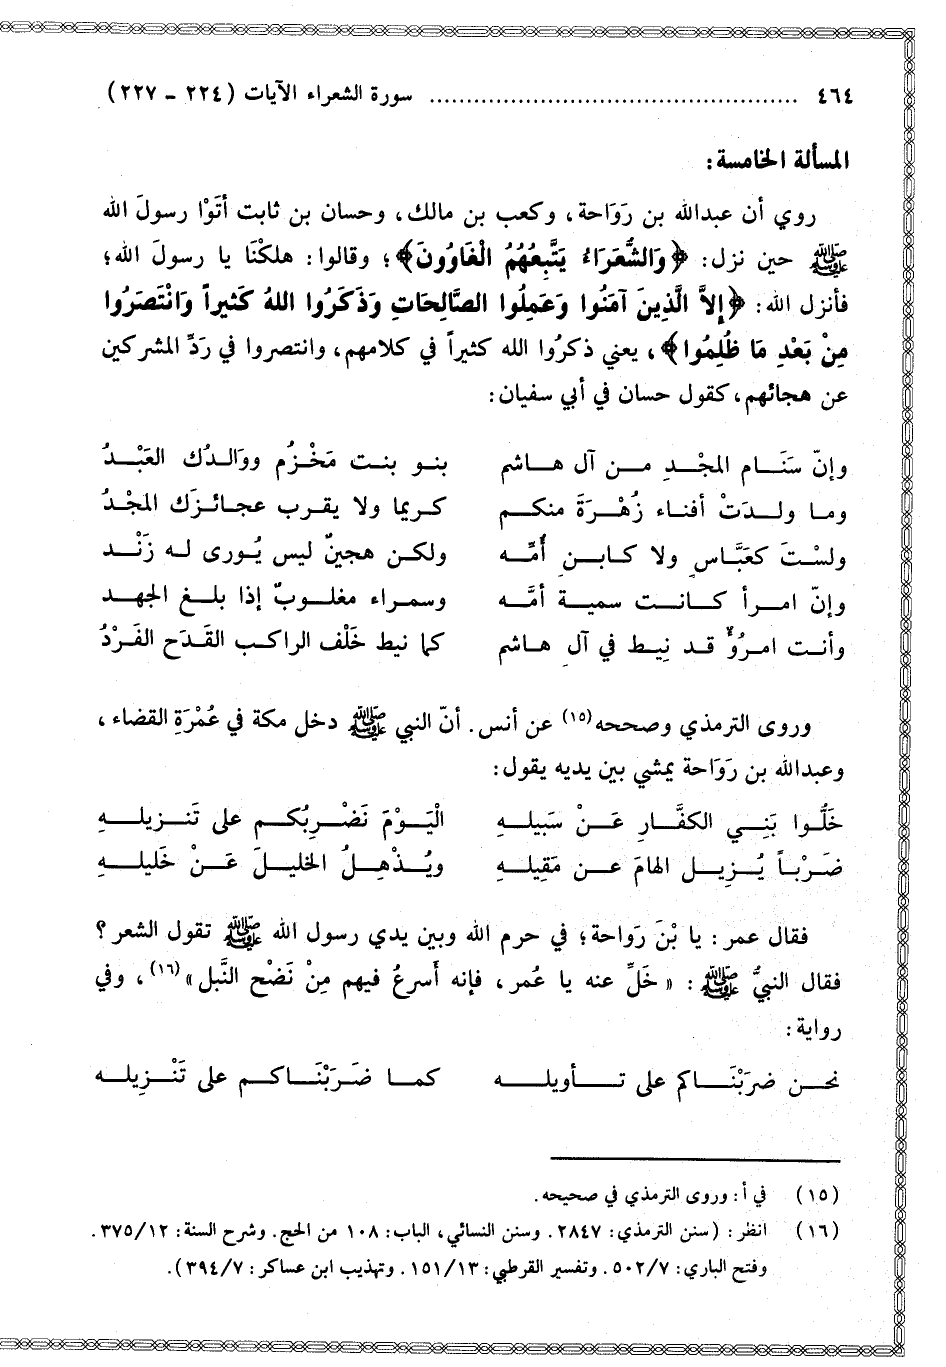 ٤٦٤ ................................................ سورة الشعراء الآيات (٢٢٤ - ٢٢٧)
المسألة الخامسة:
روي أن عبدالله بن رَوَاحة، وكعب بن مالك، وحسان بن ثابت أتَوْا رسولَ الله
ﷺ حين نزل: ﴿وَالشُّعَرَاءُ يَتَّبِعُهُمُ الْغَاوُونَ﴾؛ وقالوا: هلكْنَا يا رسولَ الله؛
فأنزل الله: ﴿إِلاَّ الَّذِينَ آمَنُوا وَعَمِلُوا الصَّالِحَاتِ وَذَكَرُوا اللهَ كَثِيراً وَانْتَصَرُوا
مِنْ بَعْدِ مَا ظُلِمُوا﴾، يعني ذكرُوا الله كثيراً في كلامهم، وانتصروا في رَدِّ المشركين
عن هجائهم، كقول حسان في أبي سفيان:
وإنّ سَنَام المجْدِ من آل هاشم بنو بنت مَخْزُم ووَالدُك العَبْدُ
وما ولدَتْ أفناء زُهْرَةَ منكم كريما ولا يقرب عجائزَك المجْدُ
ولسْتَ كعَبَّاسٍ ولا كابنِ أُمِّه ولكن هجينٌ ليس يُورى له زَنْد
وإنّ امرأ كانت سمية أمَّه وسمراء مغلوبٌ إذا بلغ الجهد
وأنت امرُؤٌ قد نِيط في آلِ هاشم كما نيط خَلْف الراكب القَدَح الفَرْدُ
وروى الترمذي وصححه(١٥) عن أنس. أنّ النبي ﷺ دخل مكة في عُمْرَةِ القضاء،
وعبدالله بن رَوَاحة يمشي بين يديه يقول:
خَلُّوا بَنِي الكفَّارِ عَنْ سَبيلهِ الْيَوْمَ نَضْرِبُكم على تَنزيلهِ
ضَرْباً يُزيل الهامَ عن مَقِيلهِ ويُذْهِلُ الخليلَ عَنْ خَليلهِ
فقال عمر: يا بْنَ رَواحة؛ في حرم الله وبين يدي رسول الله ﷺ تقول الشعر؟
فقال النبيُّ ﷺ: «خَلِّ عنه يا عُمر، فإنه أَسرعُ فيهم مِنْ نَضْح النَّبل»(١٦)، وفي
رواية:
نحن ضرَبْنَاكم على تأويله كما ضَرَبْنَاكم على تَنْزِيله
(١٥) في أ: وروى الترمذي في صحيحه.
(١٦) انظر: (سنن الترمذي: ٢٨٤٧. وسنن النسائي، الباب: ١٠٨ من الحج. وشرح السنة: ٣٧٥/١٢.
وفتح الباري: ٥٠٢/٧. وتفسير القرطبي: ١٥١/١٣. وتهذيب ابن عساكر: ٣٩٤/٧).